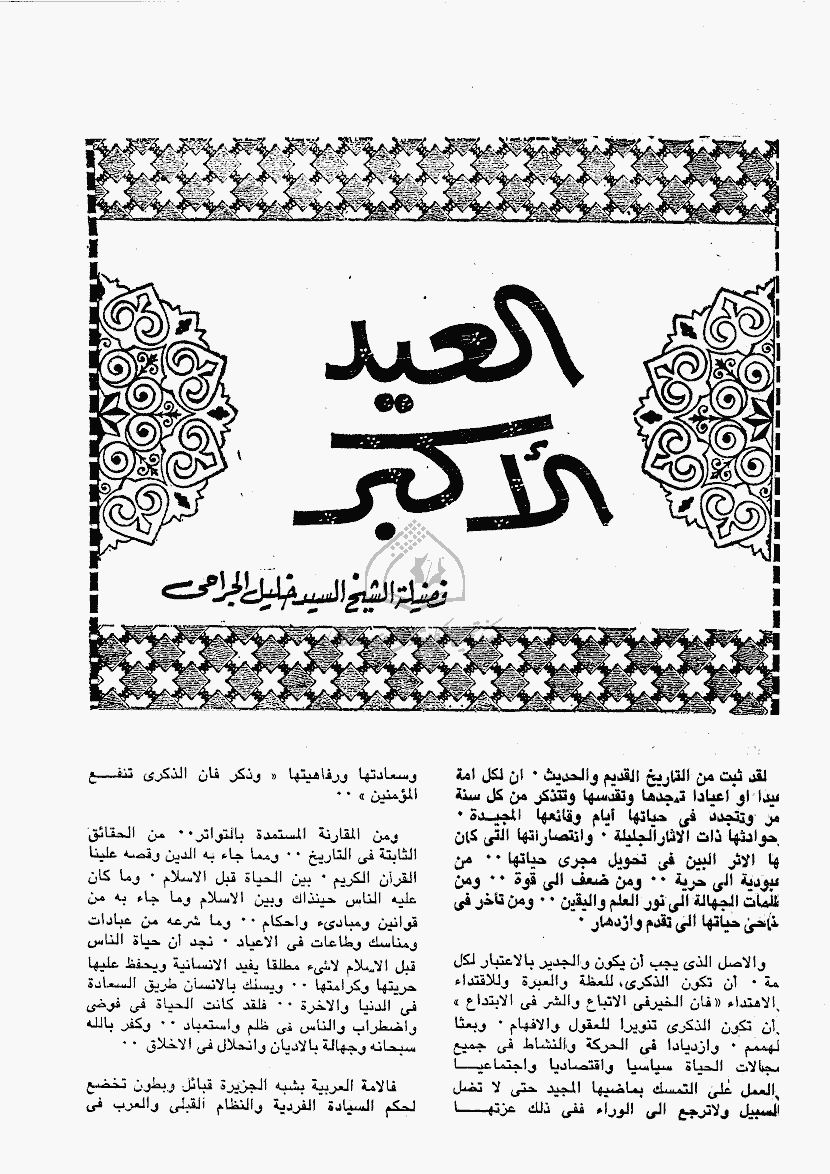 العيد
الأكبر
فضيلة الشيخ السيد خليل الجراحى
لقد ثبت من التاريخ القديم والحديث ٠ ان لكل امة
عيدا او اعيادا تمجدها وتقدسها وتتذكر من كل سنة
من وتتجدد فى حياتها أيام وقائعها المجيدة ٠
حوادثها ذات الاثار الجليلة ٠ وانتصاراتها التى كان
ها الاثر البين فى تحويل مجرى حياتها ٠٠ من
عبودية الى حرية ٠٠ ومن ضعف الى قوة ٠٠ ومن
ظلمات الجهالة الى نور العلم واليقين ٠٠ ومن تأخر فى
نواحى حياتها الى تقدم وازدهار ٠
والاصل الذى يجب أن يكون والجدير بالاعتبار لكل
مة ٠ أن تكون الذكرى، للعظة والعبرة وللاقتداء
الاهتداء « فان الخير فى الاتباع والشر فى الابتداع »
أن تكون الذكرى تنويرا للعقول والافهام ٠ وبعثا
لهمم ٠ وازديادا فى الحركة والنشاط فى جميع
مجالات الحياة سياسيا واقتصاديا واجتماعيا
العمل على التمسك بماضيها المجيد حتى لا تضل
السبيل ولاترجع الى الوراء ففى ذلك عزتها
وسعادتها ورفاهيتها « وذكر فان الذكرى تنفع
المؤمنين » ٠٠
ومن المقارنة المستمدة بالتواتر ٠٠ من الحقائق
الثابتة فى التاريخ ٠٠ ومما جاء به الدين وقصه علينا
القرآن الكريم ٠ بين الحياة قبل الاسلام ٠ وما كان
عليه الناس حينذاك وبين الاسلام وما جاء به من
قوانين ومبادىء واحكام ٠٠ وما شرعه من عبادات
ومناسك وطاعات فى الاعياد ٠ نجد أن حياة الناس
قبل الاسلام لاشىء مطلقا يفيد الانسانية ويحفظ عليها
حريتها وكرامتها ٠٠ ويسلك بالانسان طريق السعادة
فى الدنيا والاخرة ٠٠ فلقد كانت الحياة فى فوضى
واضطراب والناس فى ظلم واستعباد ٠٠ وكفر بالله
سبحانه وجهالة بالاديان وانحلال فى الاخلاق ٠٠
فالامة العربية بشبه الجزيرة قبائل وبطون تخضع
لحكم السيادة الفردية والنظام القبلى والعرب فى